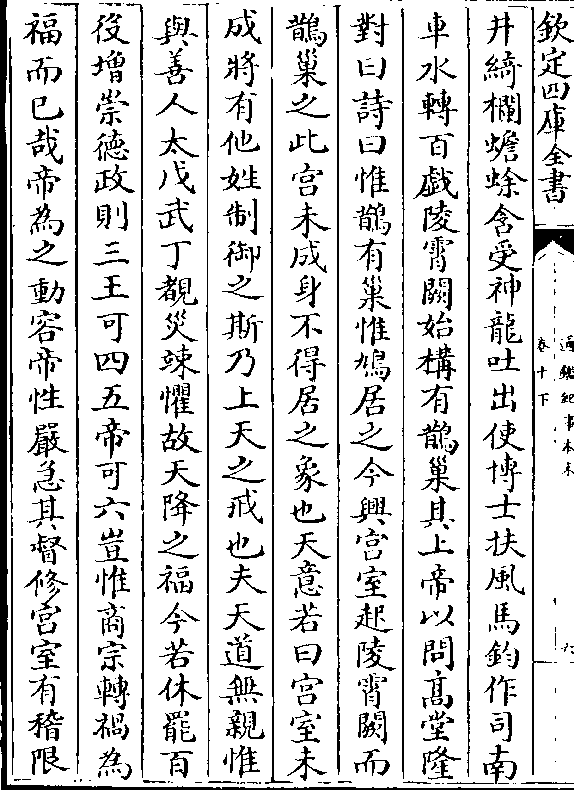 欽定四庫全書
通鑑紀事本末
卷十下
井綺欄蟾蜍含受神龍吐出使博士扶風馬鈞作司南
車水轉百戲陵霄闕始構有鵲巢其上帝以問高堂隆
對曰詩曰惟鵲有巢惟鳩居之今興宮室起陵霄闕而
鵲巢之此宮未成身不得居之象也天意若曰宮室未
成將有他姓制御之斯乃上天之戒也夫天道無親惟
與善人太戊武丁覩災竦懼故天降之福今若休罷百
役增崇德政則三王可四五帝可六豈惟商宗轉禍為
福而已哉帝為之動容帝性嚴急其督修宮室有稽限